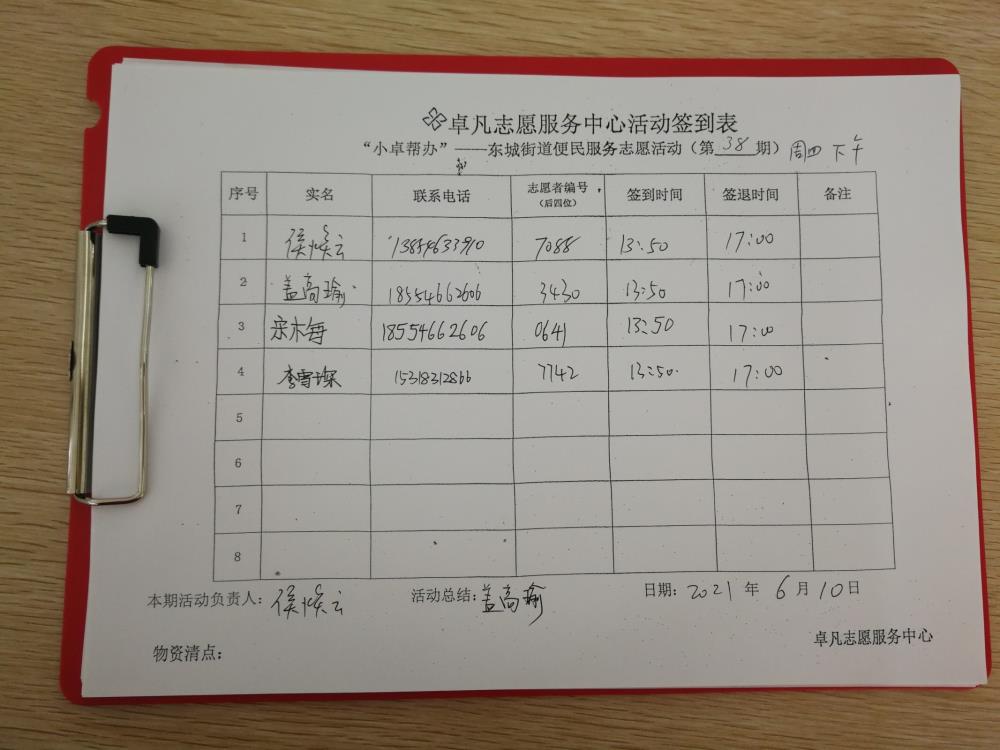 卓凡志愿服务中心活动签到表
“小卓帮办”——东城街道便民服务志愿活动（第38期）周四下午
序号 实名 联系电话 志愿者编号（后四位） 签到时间 签退时间 备注
1 侯焕云 13854633910 7088 13:50 17:00
2 盖高瑜 18554662606 3430 13:50 17:00
3 18554662606 0641 13:50 17:00
4 李雪琛 15318312866 7742 13:50 17:00
5
6
7
8
本期活动负责人：侯焕云 活动总结：盖高瑜 日期：2021年6月10日
卓凡志愿服务中心
物资清点：